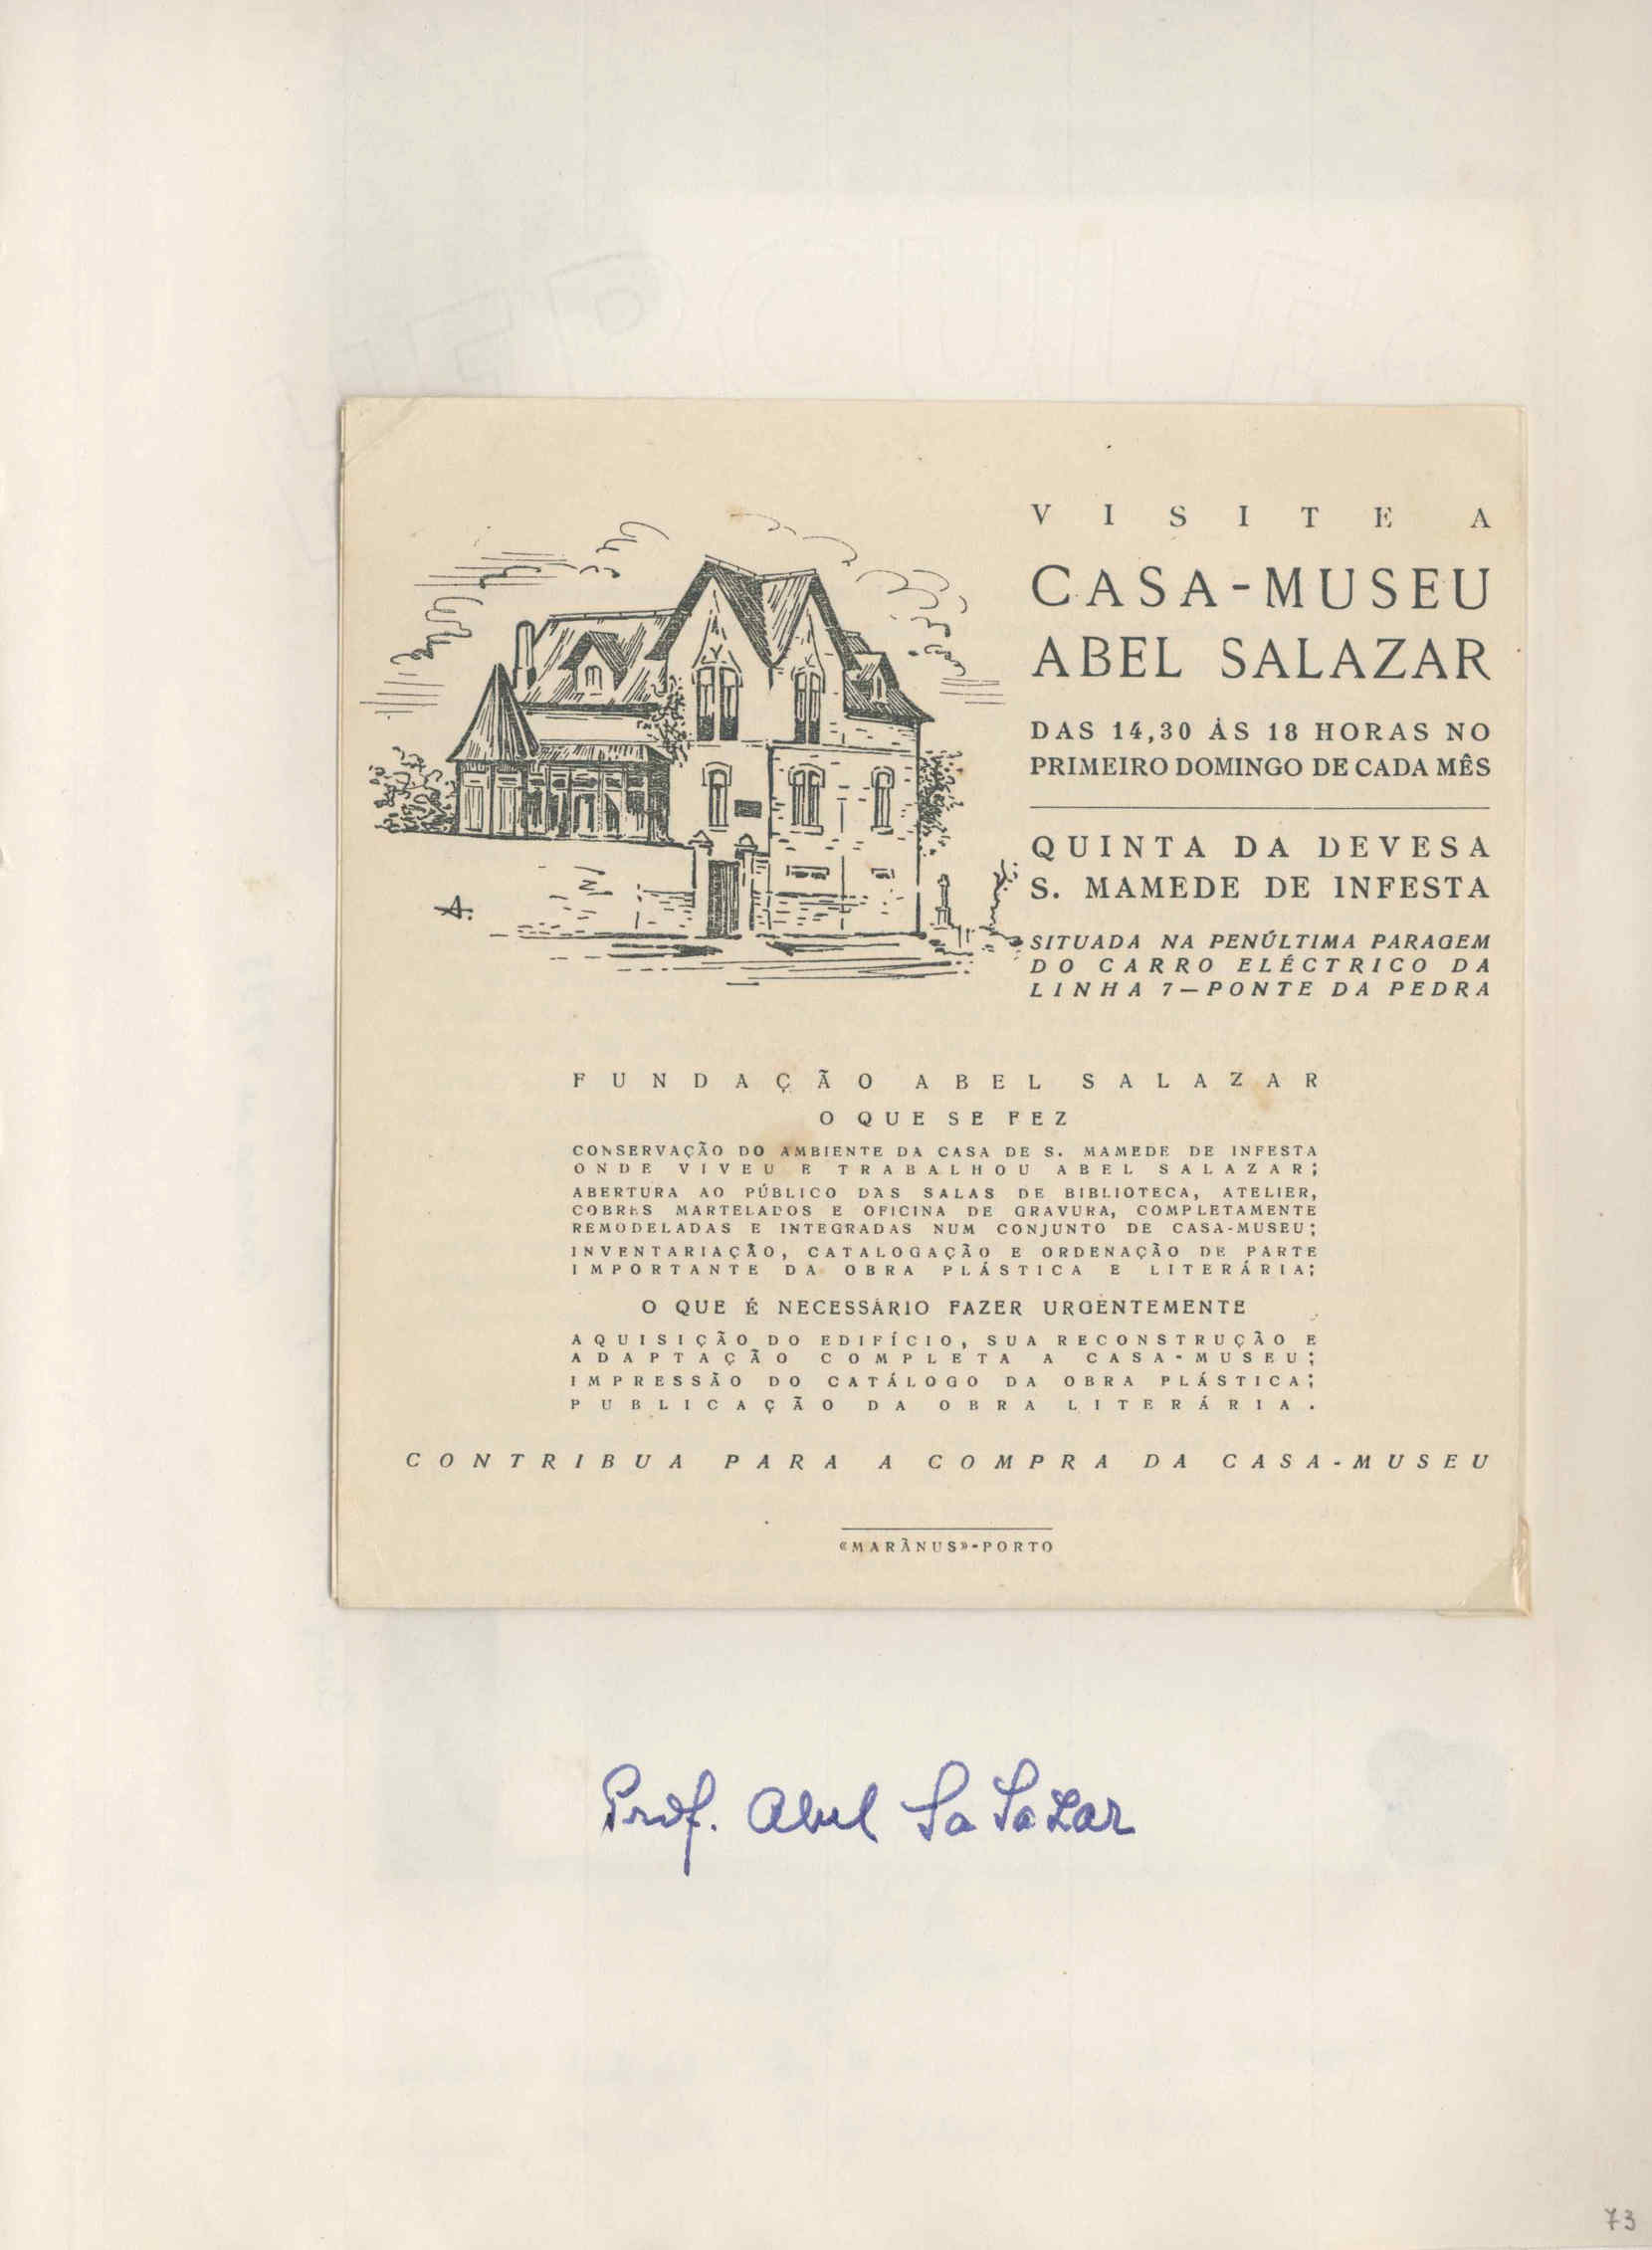 VISITE A
CASA-MUSEU
ABEL SALAZAR
DAS 14,30 ÀS 18 HORAS NO
PRIMEIRO DOMINGO DE CADA MÊS
QUINTA DA DEVESA
S. MAMEDE DE INFESTA
SITUADA NA PENÚLTIMA PARAGEM
DO CARRO ELÉCTRICO DA
LINHA 7—PONTE DA PEDRA
A.
FUNDAÇÃO ABEL SALAZAR
O QUE SE FEZ
CONSERVAÇÃO DO AMBIENTE DA CASA DE S. MAMEDE DE INFESTA
ONDE VIVEU E TRABALHOU ABEL SALAZAR;
ABERTURA AO PÚBLICO DAS SALAS DE BIBLIOTECA, ATELIER,
COBRES MARTELADOS E OFICINA DE GRAVURA, COMPLETAMENTE
REMODELADAS E INTEGRADAS NUM CONJUNTO DE CASA-MUSEU;
INVENTARIAÇÃO, CATALOGAÇÃO E ORDENAÇÃO DE PARTE
IMPORTANTE DA OBRA PLÁSTICA E LITERÁRIA;
O QUE É NECESSÁRIO FAZER URGENTEMENTE
AQUISIÇÃO DO EDIFÍCIO, SUA RECONSTRUÇÃO E
ADAPTAÇÃO COMPLETA A CASA-MUSEU;
IMPRESSÃO DO CATÁLOGO DA OBRA PLÁSTICA;
PUBLICAÇÃO DA OBRA LITERÁRIA.
CONTRIBUA PARA A COMPRA DA CASA-MUSEU
«MARÂNUS»-PORTO
Prof. Abel Salazar
73